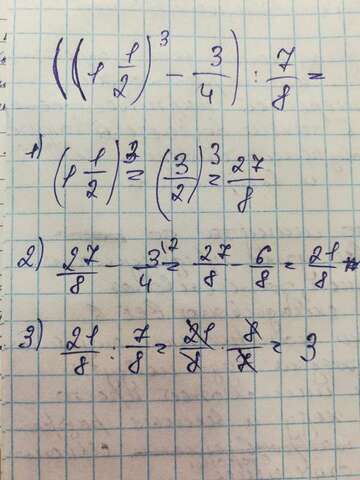 ((1 1/2)^3 - 3/4) : 7/8 =
1) (1 1/2)^3 = (3/2)^3 = 27/8
2) 27/8 - 3^(2/4 = 27/8 - 6/8 = 21/8
3) 21/8 : 7/8 = 21/8 · 8/7 = 3